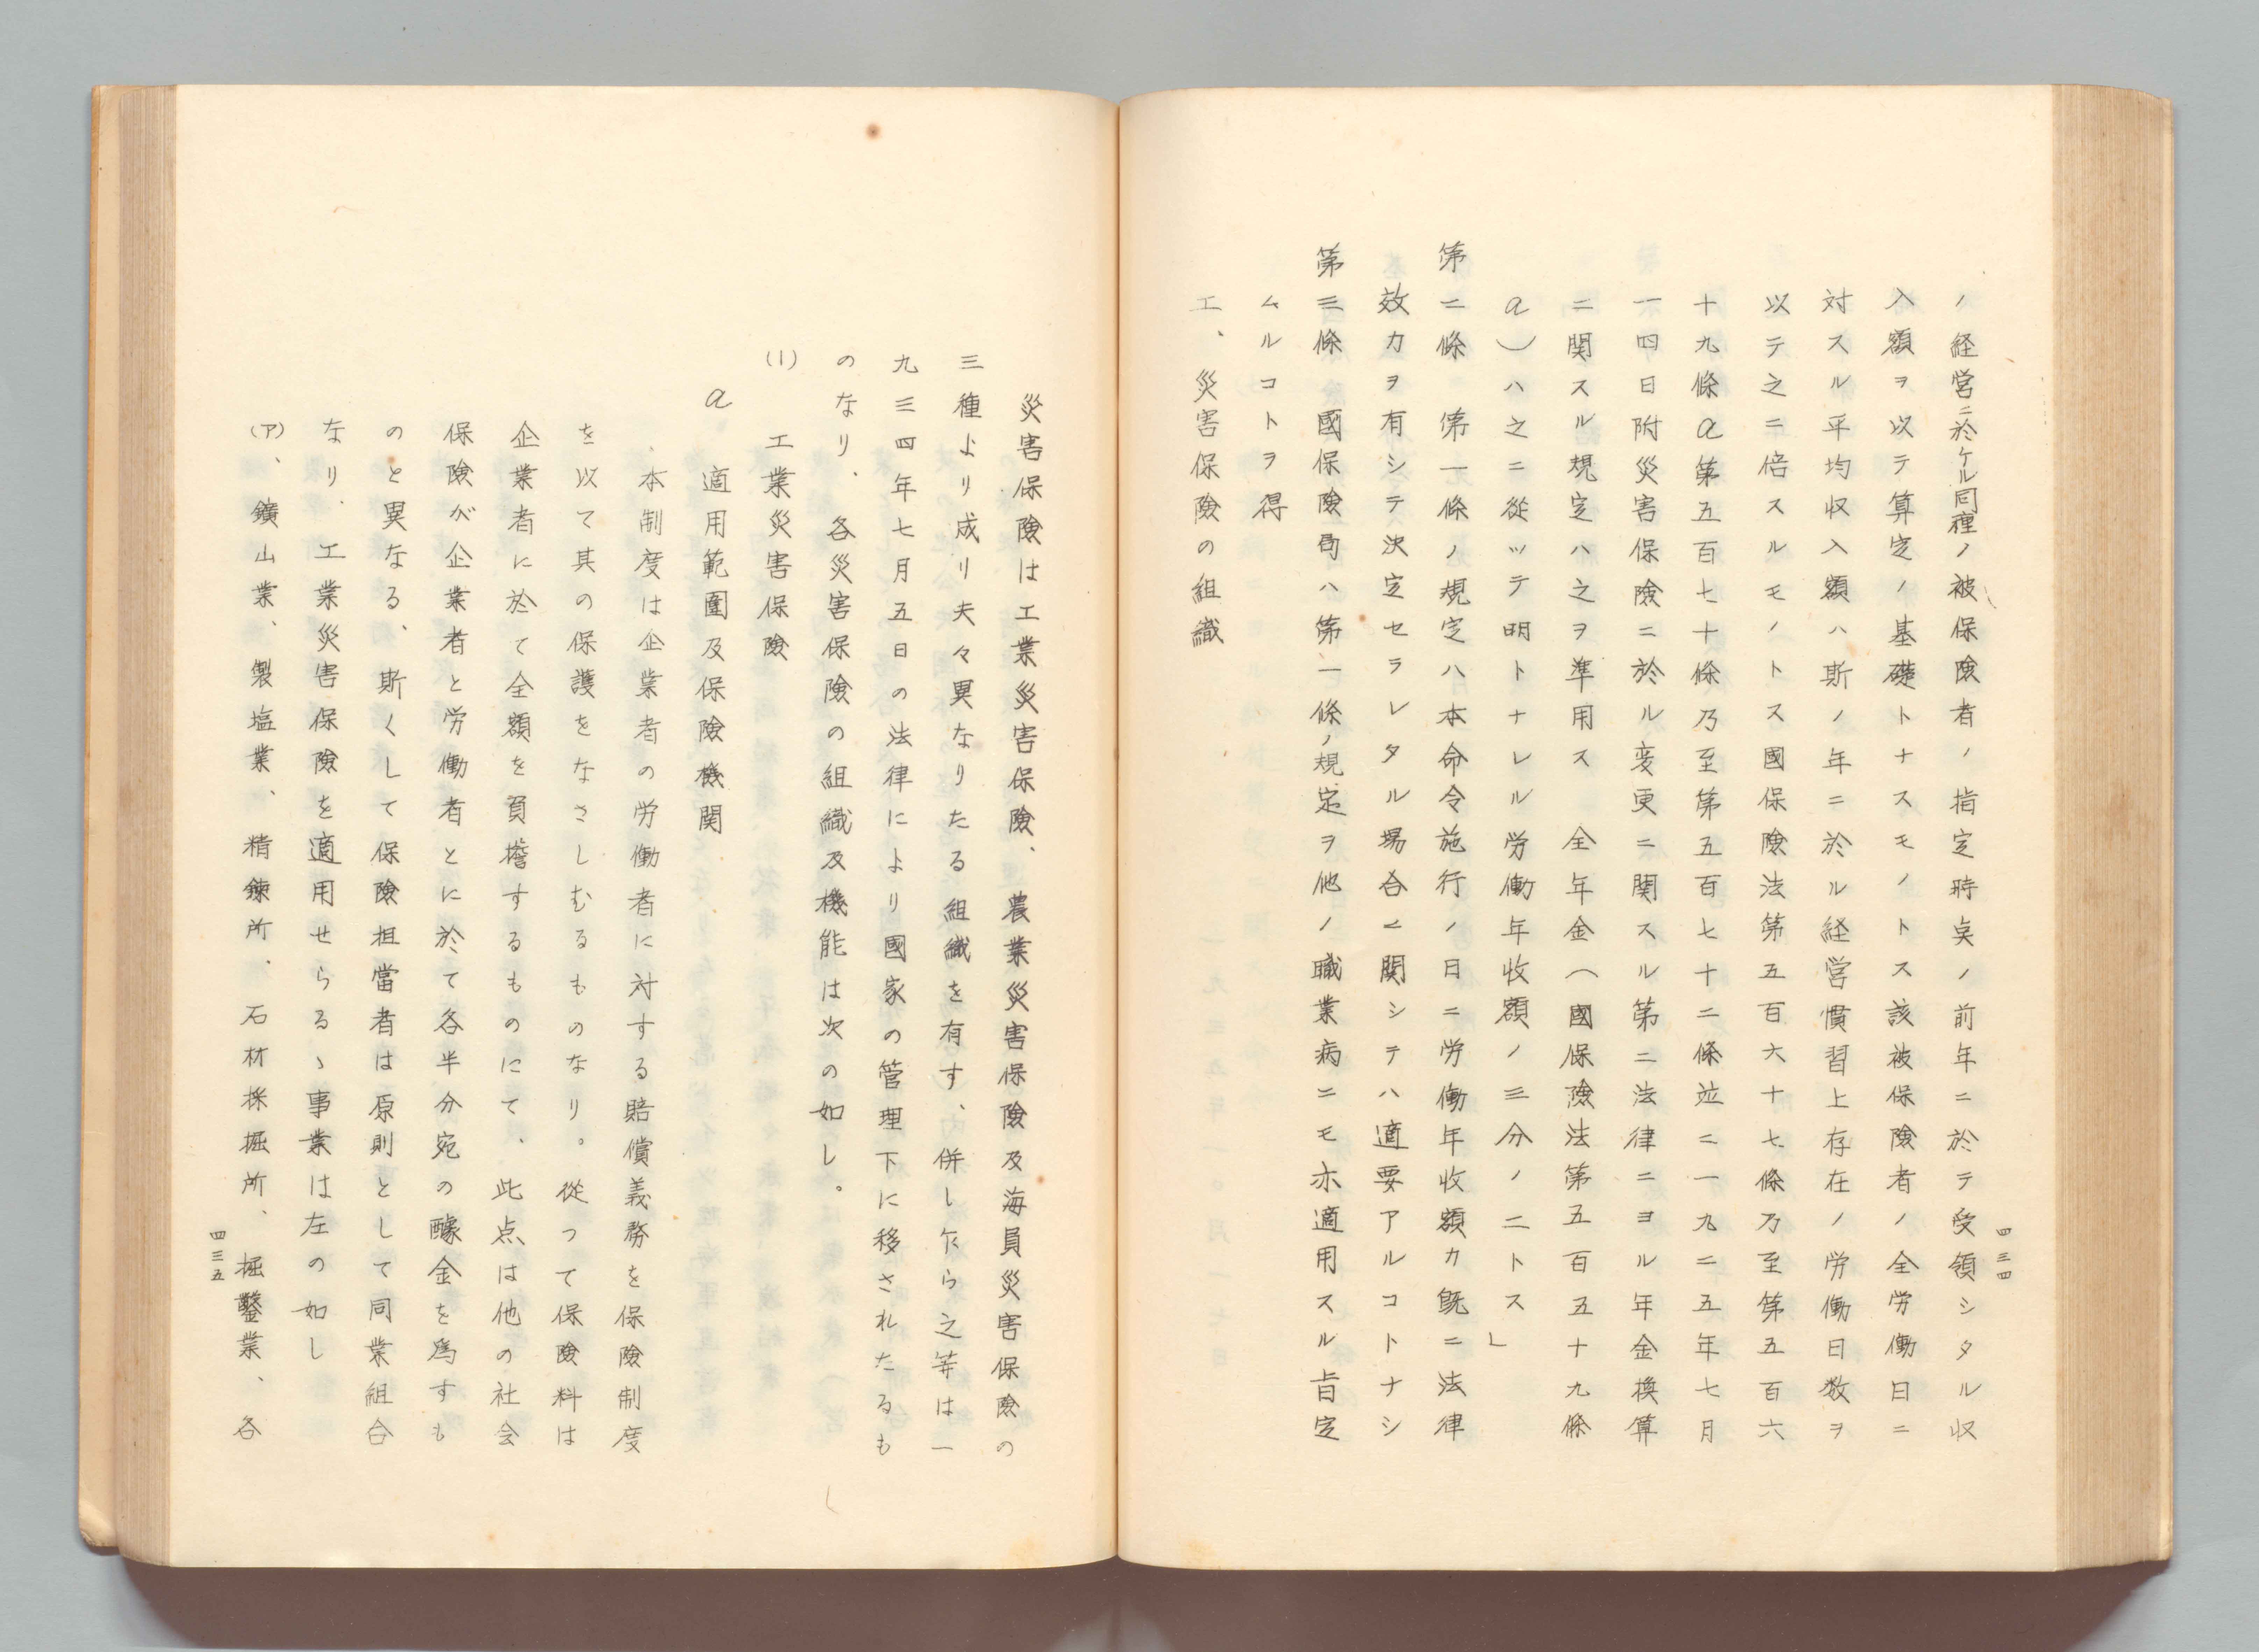 ノ経営ニ於ケル同種ノ被保険者ノ指定時点ノ前年ニ於テ受領シタル収
入額ヲ以テ算定ノ基礎トナスモノトス該被保険者ノ全労働日ニ
対スル平均収入額ハ斯ノ年ニ於ル経営慣習上存在ノ労働日数ヲ
以テ之ニ倍スルモノトス國保険法第五百六十七條乃至第五百六
十九條a第五百七十條乃至第五百七十二條竝ニ一九二五年七月
一四日附災害保険ニ於ル変更ニ関スル第二法律ニヨル年金換算
ニ関スル規定ハ之ヲ準用ス 全年金(國保険法第五百五十九條
a)ハ之ニ從ッテ明トナレル労働年收額ノ三分ノ二トス」
第二條 第一條ノ規定ハ本命令施行ノ日ニ労働年收額カ既ニ法律
效力ヲ有シテ決定セラレタル場合ニ関シテハ適要アルコトナシ
第三條 國保険局ハ第一條ノ規定ヲ他ノ職業病ニモ亦適用スル旨定
ムルコトヲ得
工、災害保険の組織
四三四
災害保険は工業災害保険、農業災害保険及海員災害保険の
三種より成り夫々異なりたる組織を有す、併し乍ら之等は一
九三四年七月五日の法律により國家の管理下に移されたるも
のなり、各災害保険の組織及機能は次の如し。
(1) 工業災害保険
a 適用範圍及保険機関
、本制度は企業者の労働者に対する賠償義務を保険制度
を以て其の保護をなさしむるものなり。從つて保険料は
企業者に於て全額を負擔するものにて、此点は他の社会
保険が企業者と労働者とに於て各半分宛の醵金を爲すも
のと異なる、斯くして保険担當者は原則として同業組合
なり、工業災害保険を適用せらるゝ事業は左の如し
(ア)、鑛山業、製塩業、精錬所、石材採掘所、掘鑿業、各
四三五